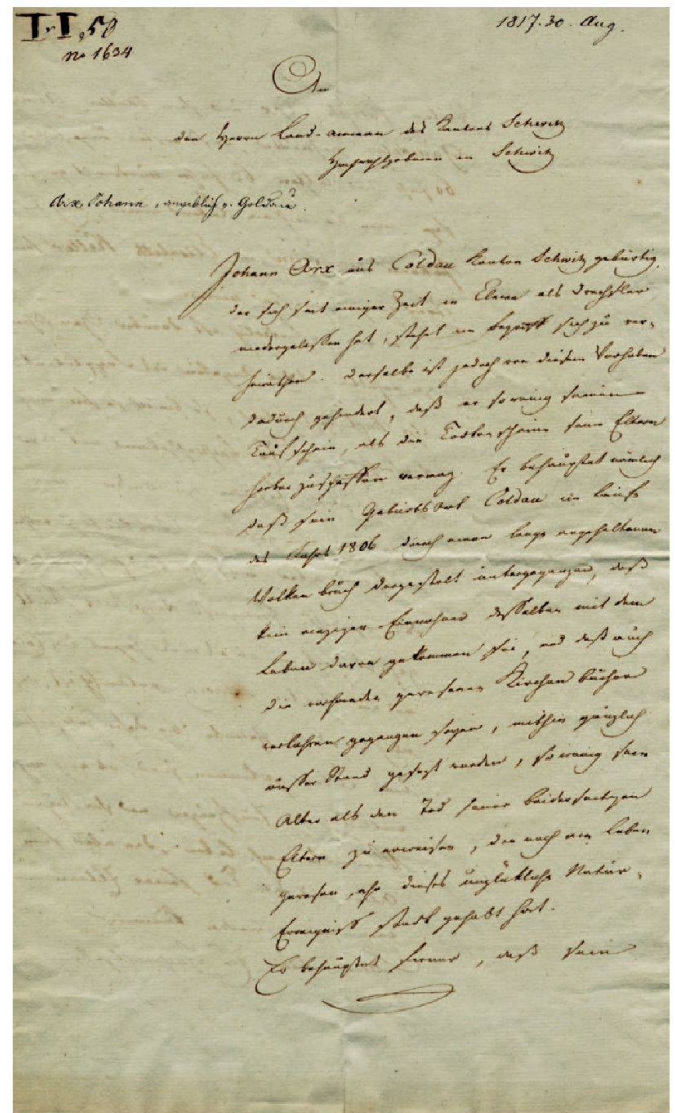 I. I. 50
1817. 30. Aug.
no 1634
An
den Herrn Land-amman des Kantons Schwitz
Hochwohlgeboren in Schwitz
Arx, Johann, angeblich v. Goldau.
Johann Arx aus Coldau Kanton Schwitz gebürtig,
der sich seit einiger Zeit in als Drechsler
niedergelassen hat, steht im Begriff sich zu ver-
heirathen. Derselbe ist jedoch von diesem Vorhaben
dadurch gehindert, daß er so wenig seinen
Taufschein, als die Todtenscheine seiner Eltern
herbei zuschaffen vermag. Er behauptet nämlich
daß sein Geburtsort Coldau im Laufe
des Jahrs 1806 durch einen lange angehaltenen
Wolkenbruch dergestalt untergegangen, daß
kein einziger Einwohner desselben mit dem
Leben davon gekommen sei, und daß auch
die vorhanden gewesenen Kirchenbücher
verlohren gegangen seyen, mithin gänzlich
ausser Stand gesetzt worden, so wenig sein
Alter als den Tod seiner beiderseitigen
Eltern zu erweisen, die noch am Leben
gewesen, ehe dieses unglückliche Natur-
Ereigniß statt gehabt hat.
Er behauptet ferner, daß sein